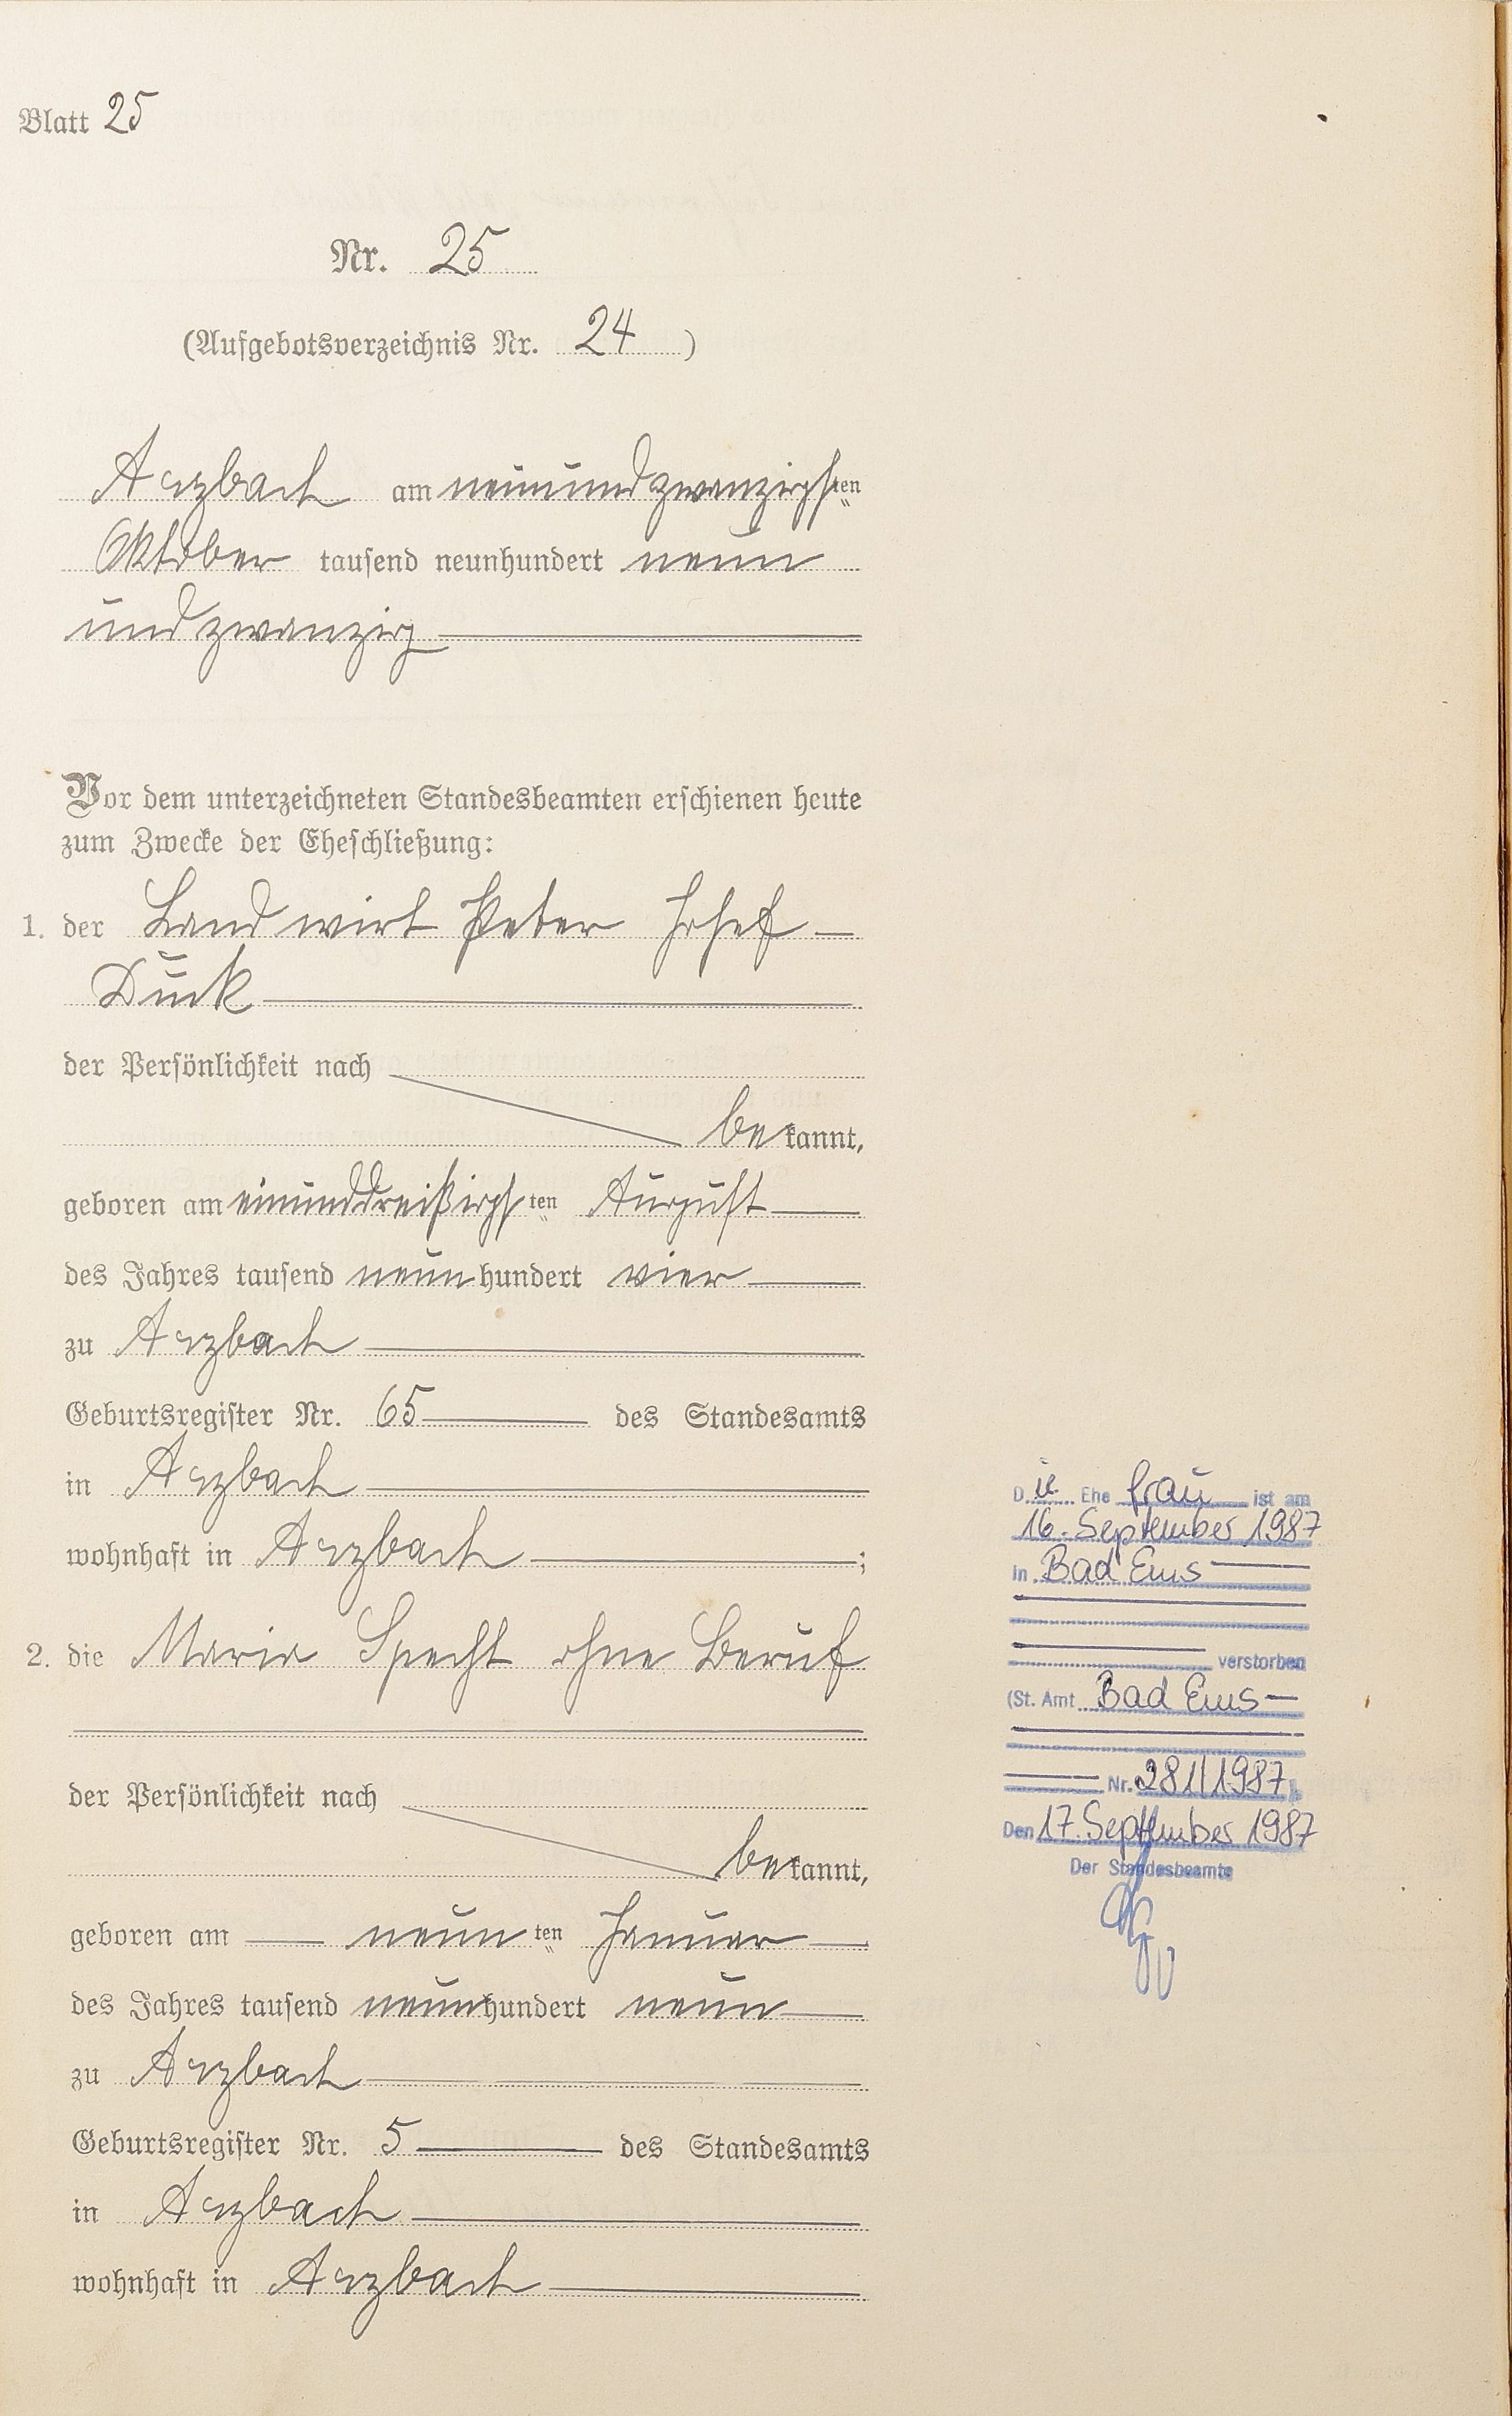 Blatt 25
Nr. 25
(Aufgebotsverzeichnis Nr. 24 )
Arzbach am neunundzwanzigsten
Oktober tausend neunhundert neun
und zwanzig
Vor dem unterzeichneten Standesbeamten erschienen heute
zum Zwecke der Eheschließung:
1. der Landwirt Peter Josef
Duck
der Persönlichkeit nach
bekannt,
geboren am einunddreißigsten August
des Jahres tausend neunhundert vier
zu Arzbach
Geburtsregister Nr. 65 des Standesamts
in Arzbach
wohnhaft in Arzbach ;
2. die Maria Specht ohne Beruf
der Persönlichkeit nach
bekannt,
geboren am neunten Januar
des Jahres tausend neunhundert neun
zu Arzbach
Geburtsregister Nr. 5 des Standesamts
in Arzbach
wohnhaft in Arzbach
Die Ehefrau ist am
16. September 1987
in Bad Ems
verstorben
(St. Amt Bad Ems
Nr. 281/1987)
Den 17. September 1987
Der Standesbeamte